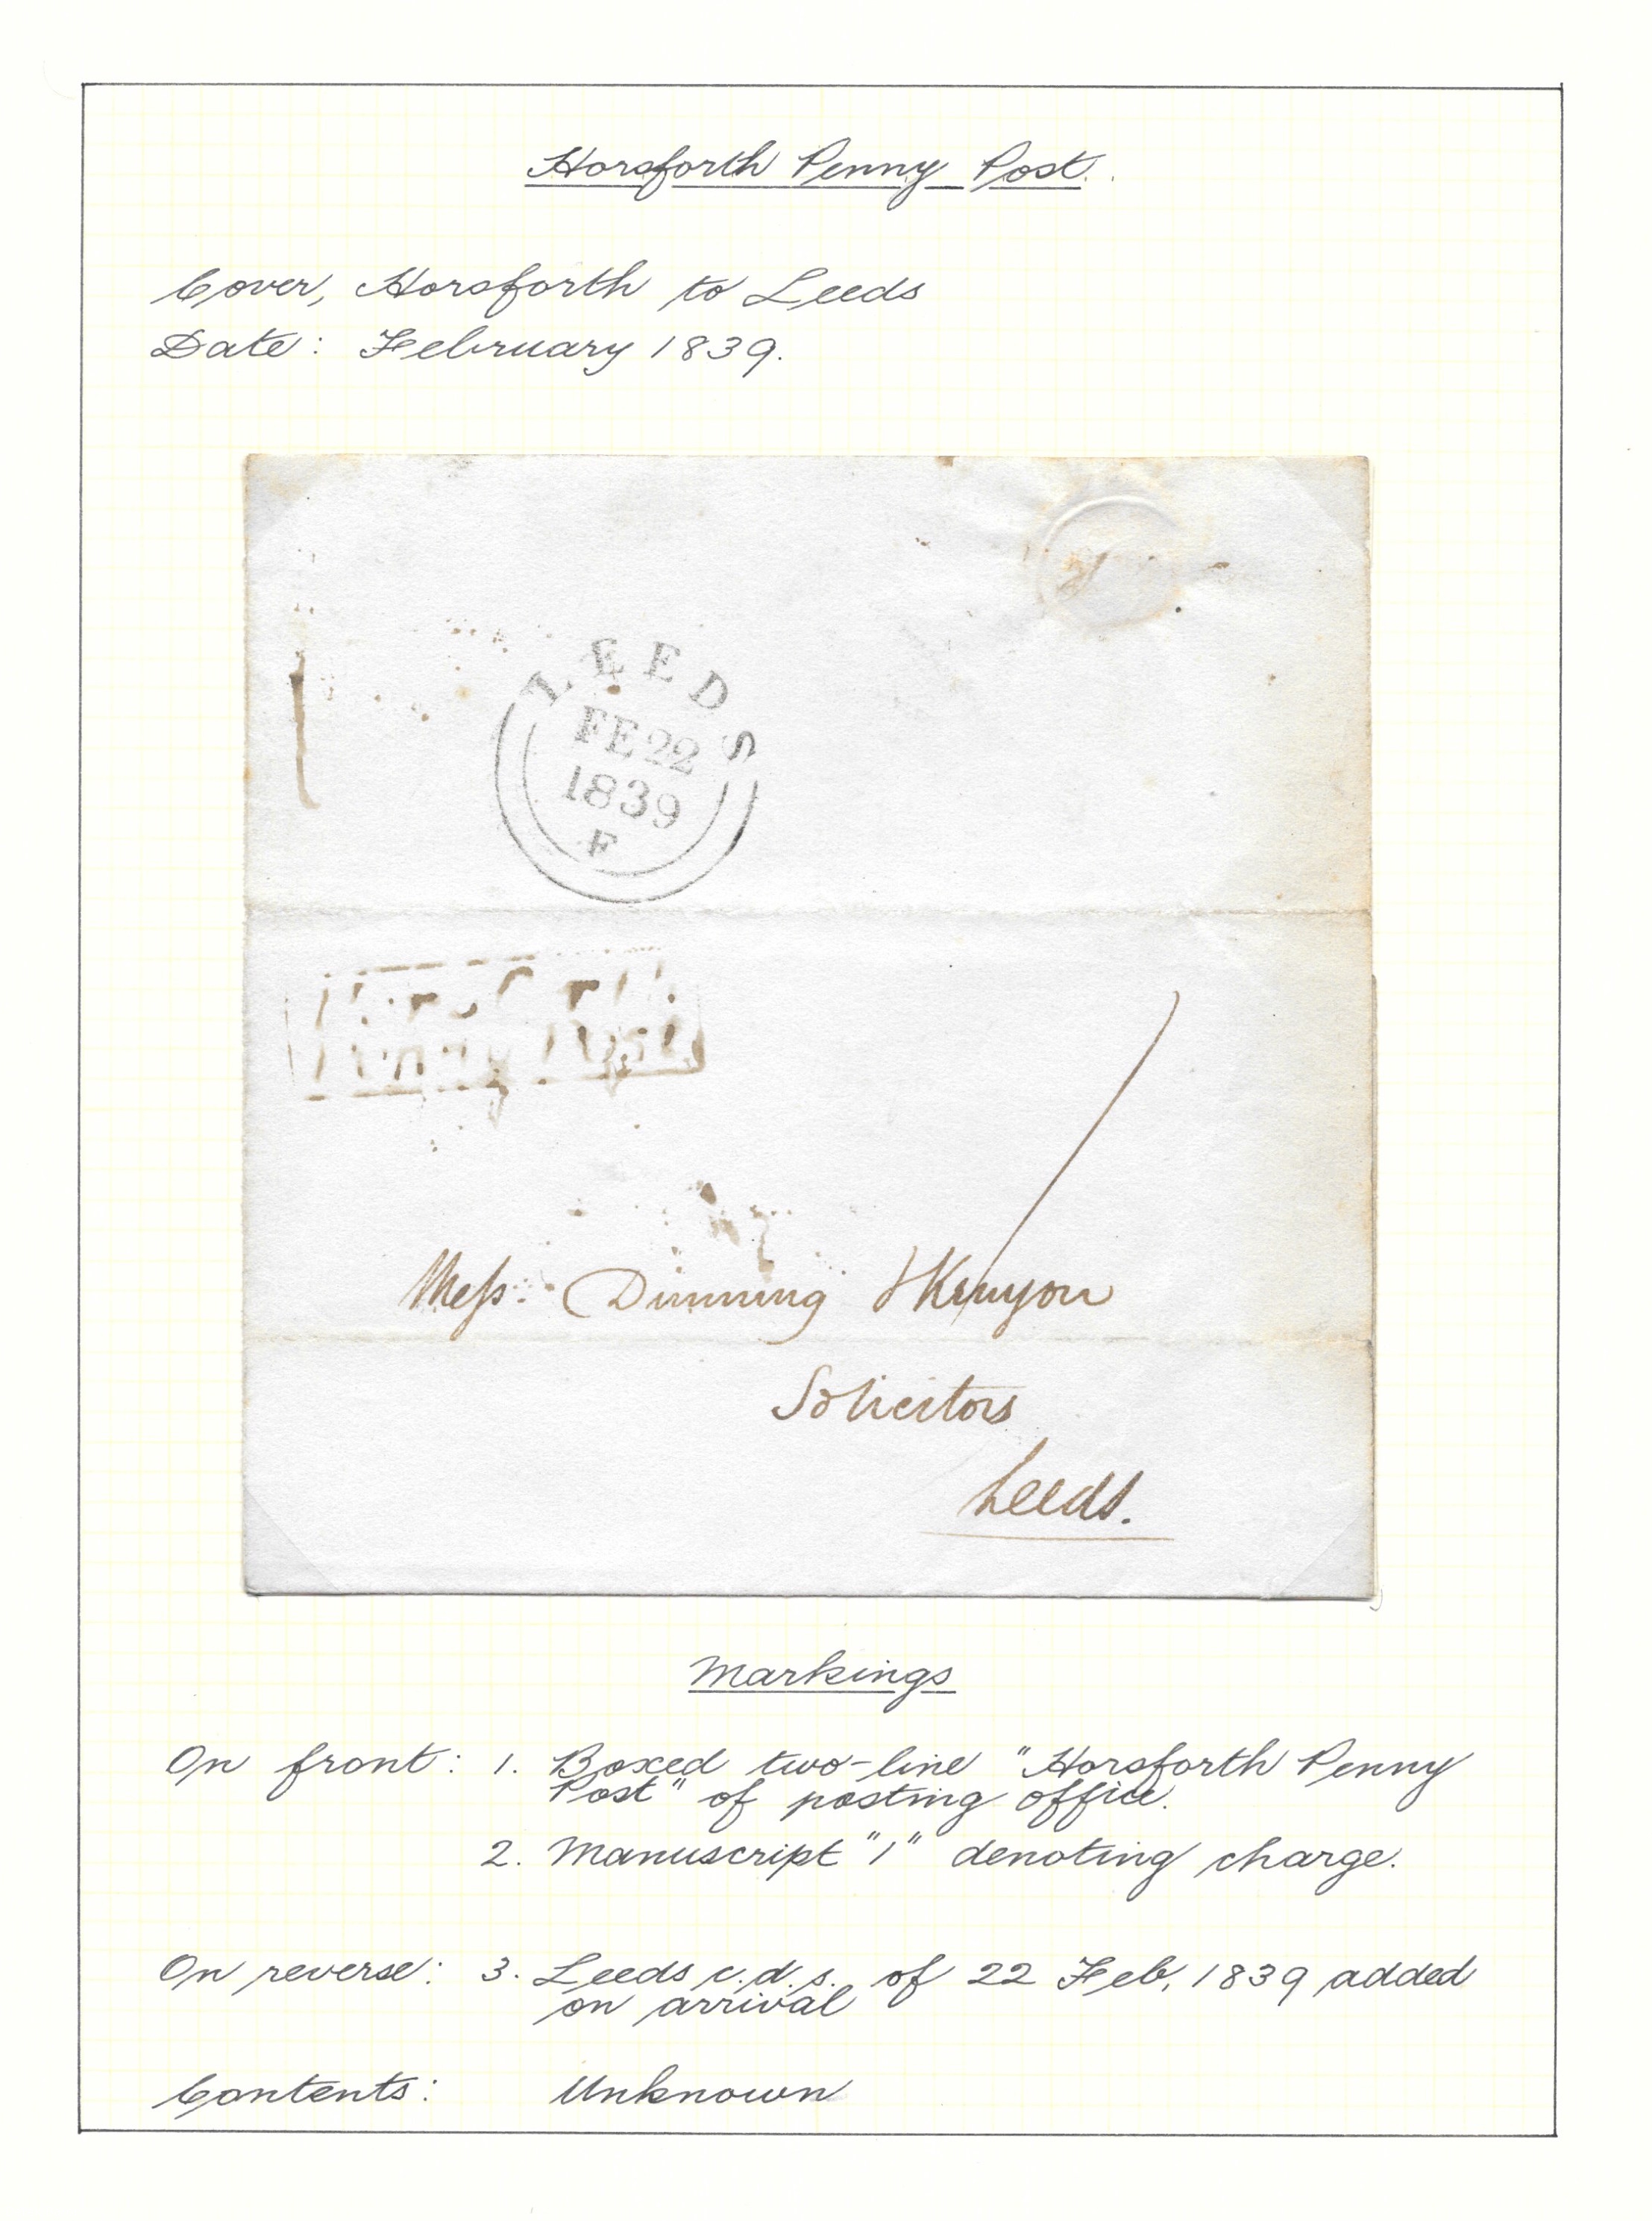 Horsforth Penny Post.
Cover, Horsforth to Leeds
Date: February 1839.
LEEDS
FE 22
1839
F
Penny Post
1
Mess. Dinning & Kenyon
Solicitors
Leeds.
Markings
On front: 1. Boxed two-line "Horsforth Penny
Post" of posting office.
2. Manuscript "1" denoting charge.
On reverse: 3. Leeds c.d.s. of 22 Feb, 1839 added
on arrival
Contents: Unknown